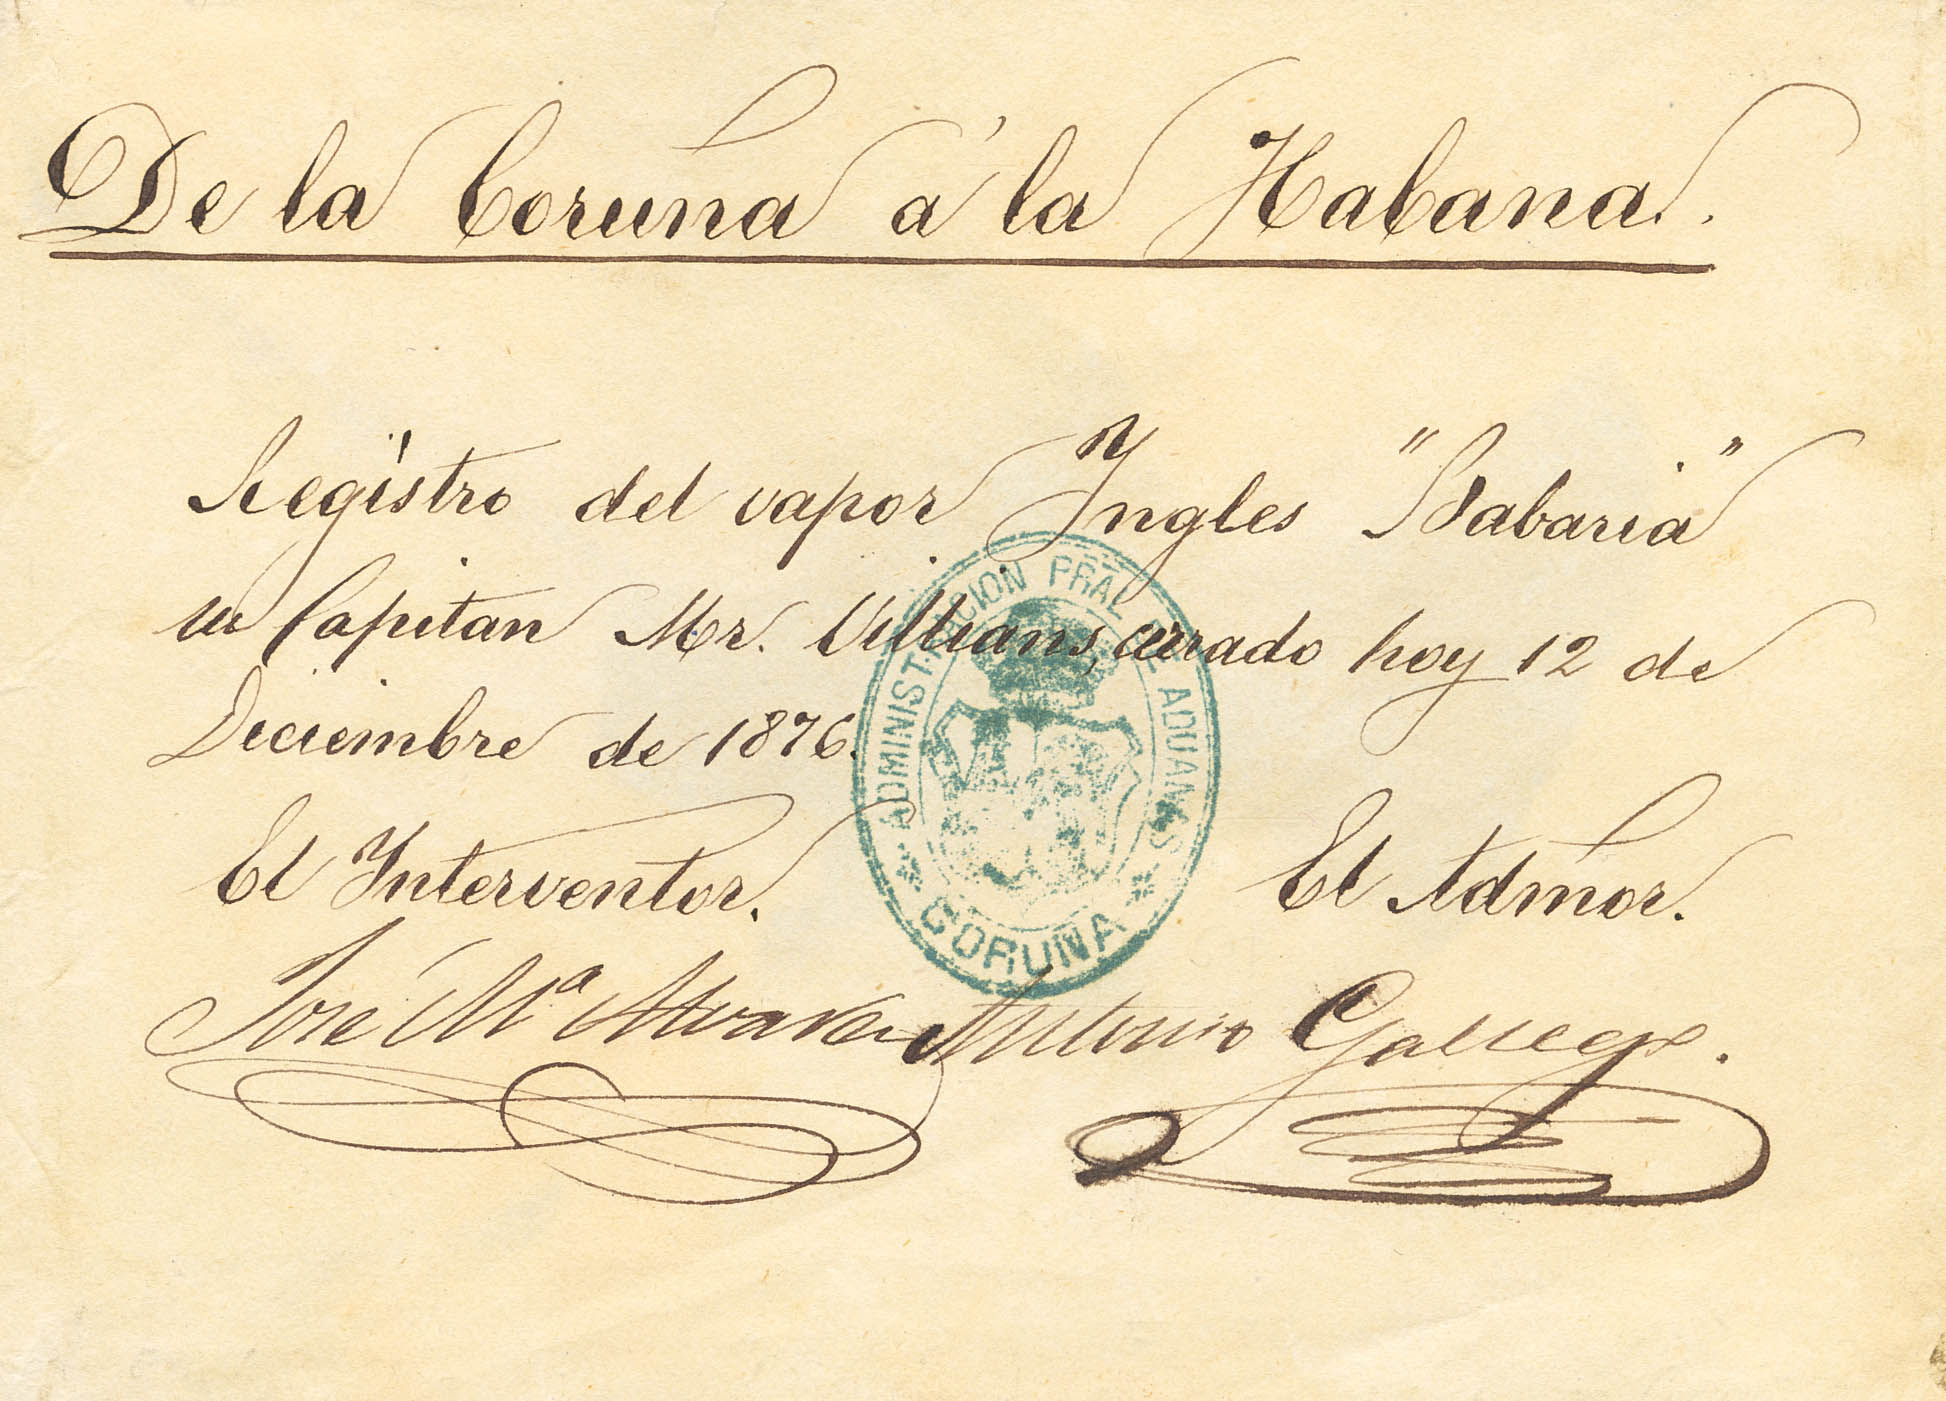 De la Coruña á la Habana.
Registro del vapor Ingles "Babaria"
su Capitan Mr. Villians, cerrado hoy 12 de
Diciembre de 1876.
El Interventor.
El Admor.
José Mª Alvarez
Antonio Gallego.
ADMINISTRACION PRAL DE ADUANAS
CORUÑA